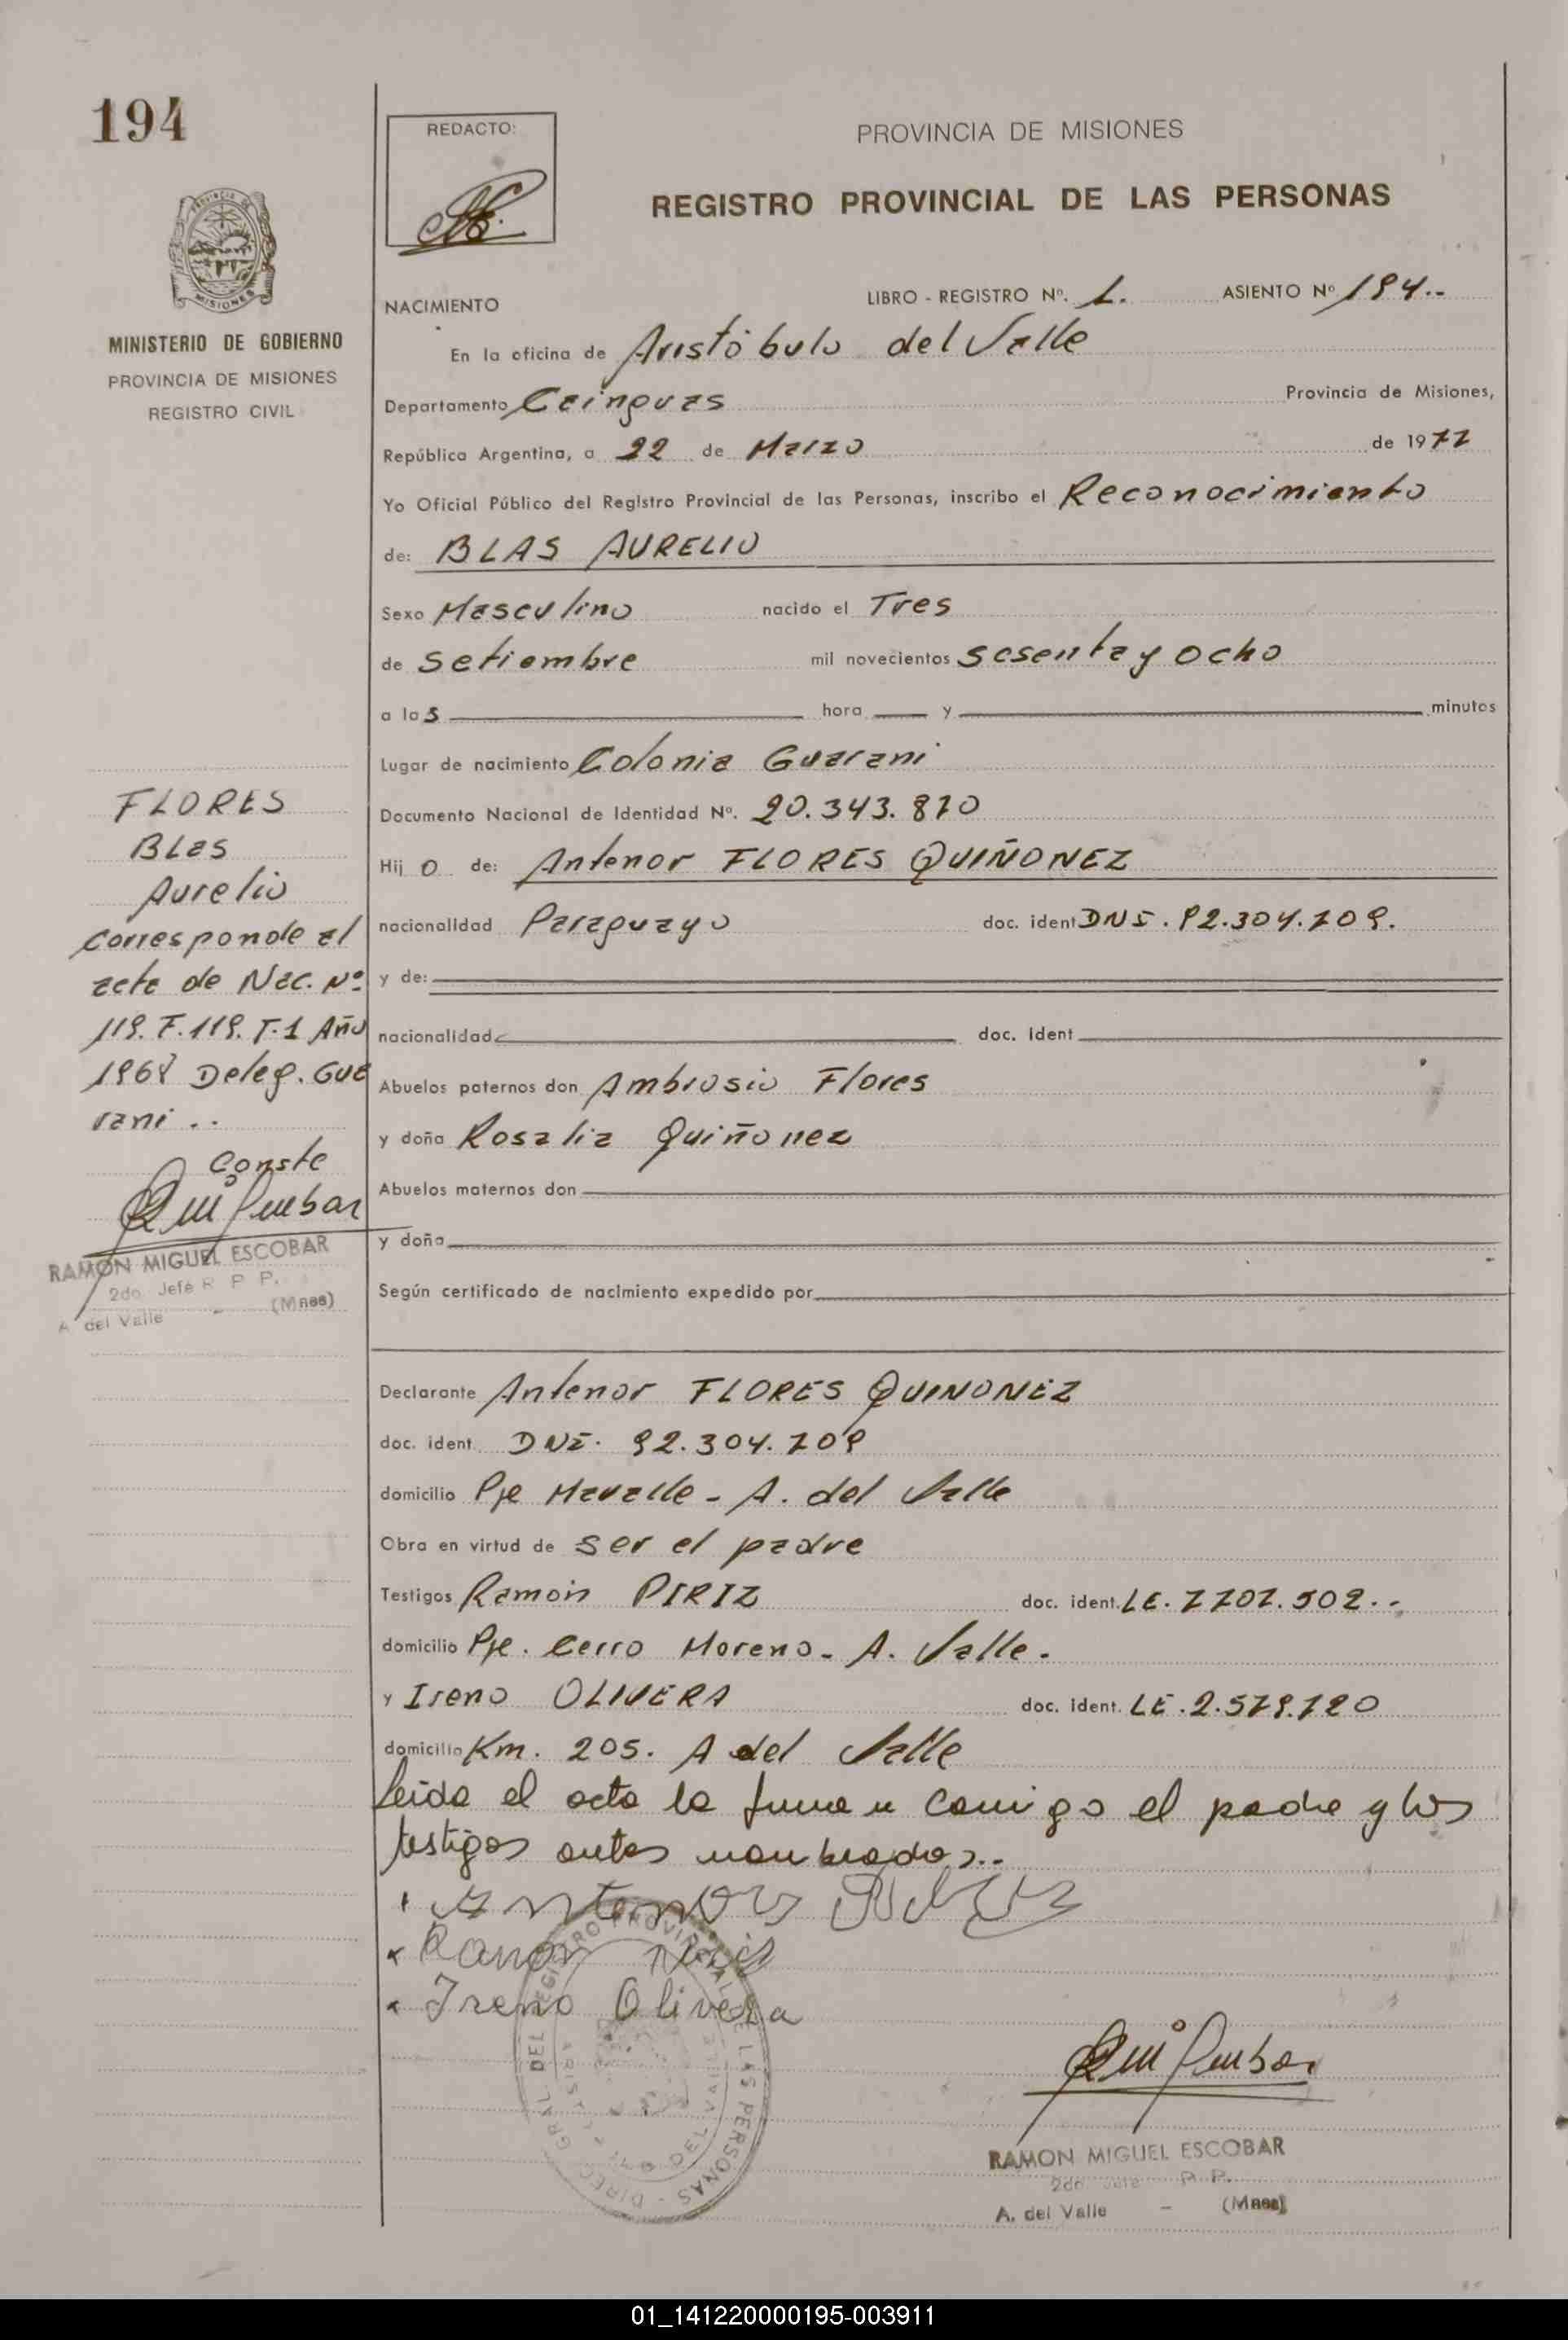 194
REDACTO:
PROVINCIA DE MISIONES
REGISTRO PROVINCIAL DE LAS PERSONAS
MISIONES
MINISTERIO DE GOBIERNO
PROVINCIA DE MISIONES
REGISTRO CIVIL
NACIMIENTO LIBRO - REGISTRO Nº. 1. ASIENTO Nº 194..
En la oficina de Aristóbulo del Valle
Departamento Cainguas Provincia de Misiones,
República Argentina, a 22 de Marzo de 1977
Yo Oficial Público del Registro Provincial de las Personas, inscribo el Reconocimiento
de: BLAS AURELIO
Sexo Masculino nacido el Tres
de Setiembre mil novecientos sesenta y ocho
a las hora y minutos
Lugar de nacimiento Colonia Guarani
Documento Nacional de Identidad Nº. 20.343.870
Hij o de: Antenor FLORES QUIÑONEZ
nacionalidad Paraguayo doc. ident DNI. 92.304.709.
y de:
nacionalidad doc. ident
Abuelos paternos don Ambrosio Flores
y doña Rosalia Quiñonez
Abuelos maternos don
y doña
Según certificado de nacimiento expedido por
FLORES
Blas
Aurelio
corresponde al
acta de Nac. Nº
119. F. 119. T. 1 Año
1968 Deleg. Gua
rani ..
Conste
RAMON MIGUEL ESCOBAR
2do Jefe R P P.
A del Valle - (Mnes)
Declarante Antenor FLORES QUINONEZ
doc. ident. DNI. 92.304.709
domicilio Pje Mavalle - A. del Valle
Obra en virtud de ser el padre
Testigos Ramón PIRIZ doc. ident. LE. 7707.502..
domicilio Pje. Cerro Moreno - A. Valle.
y Ireno OLIVERA doc. ident. LE. 2.579.720
domicilio Km. 205. A del Valle
Leida el acta la firman conmigo el padre y los
testigos antes nombrados..
Antenor
Ramon
Ireno Olivera
RAMON MIGUEL ESCOBAR
2do Jefe P. P.
A. del Valle - (Mnes)
01_141220000195-003911